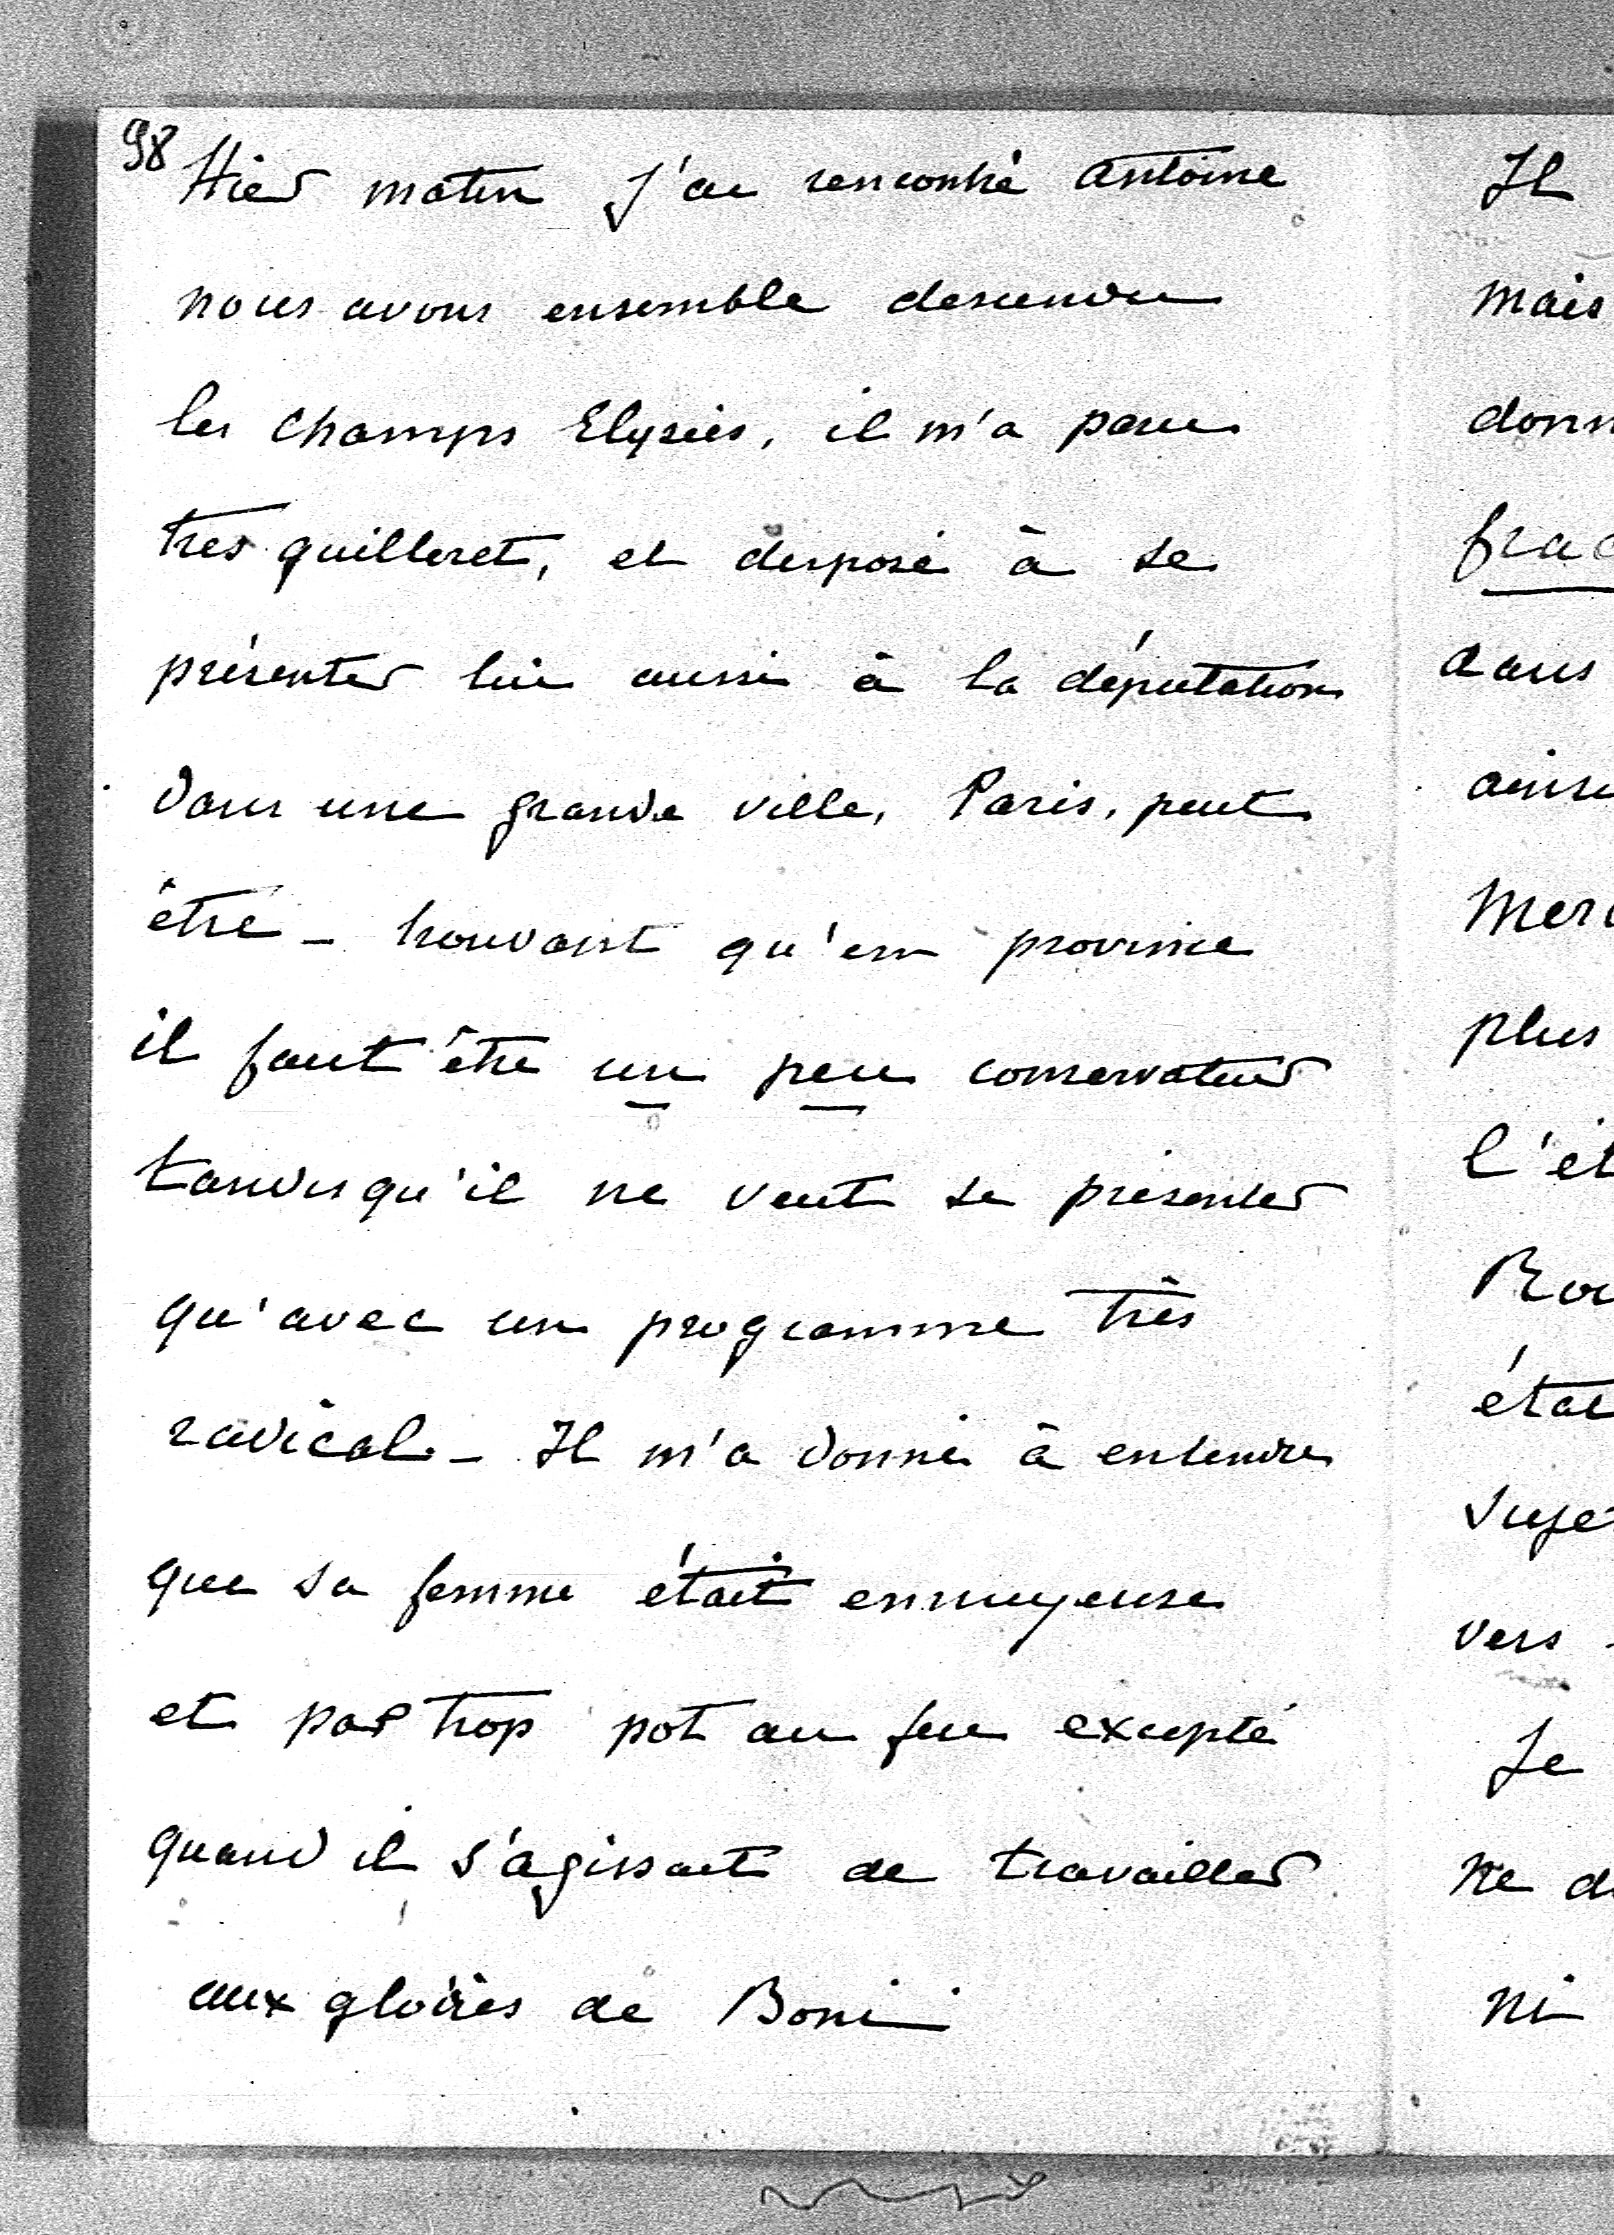 98
Hier matin j'ai rencontré Antoine
nous avons ensemble descendu
les Champs Elysées, il m'a paru
très guilleret, et disposé à se
présenter lui aussi à la députation
dans une grande ville, Paris, peut
être _ trouvant qu'en province
il faut être un peu conservateur
tandis qu'il ne veut se présenter
qu'avec un programme très
radical _ Il m'a donné à entendre
que sa femme était ennuyeuse
et par trop pot au feu excepté
quand il s'agissait de travailler
aux gloires de Boni
Il
mais
donn
frac
dans
ainsi
Mer
plus
l'ét
Rou
étai
suje
vers
Je
ne d
ni